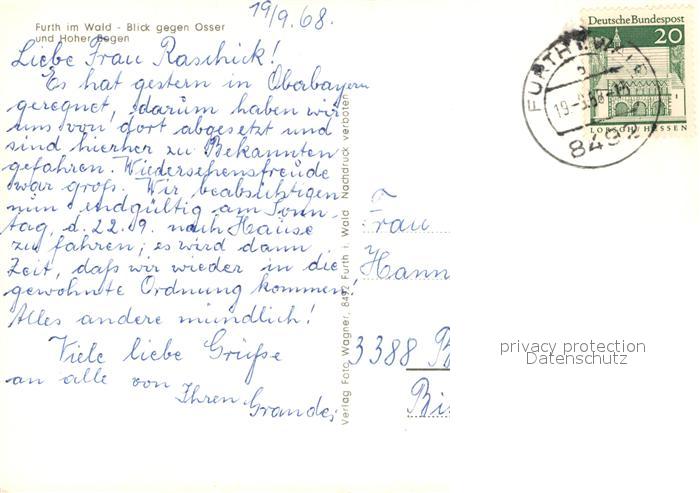 19/9.68.
Furth im Wald - Blick gegen Osser
und Hoher Bogen
Liebe Frau Raschick!
Es hat gestern in Oberbayern
geregnet, darum haben wir
uns von dort abgesetzt und
sind hierher zu Bekannten
gefahren. Wiedersehensfreude
war groß. Wir beabsichtigen
nun endgültig am Sonn-
tag, d. 22.9. nach Hause
zu fahren; es wird dann
Zeit, daß wir wieder in die
gewohnte Ordnung kommen!
Alles andere mündlich!
Viele liebe Grüße
an alle von
Ihren
Verlag Foto Wagner, 8492 Furth i. Wald Nachdruck verboten
Deutsche Bundespost
20
LORSCH/HESSEN
FURTH I. WALD
8492
Frau
Hann
3388 B
privacy protection
Datenschutz